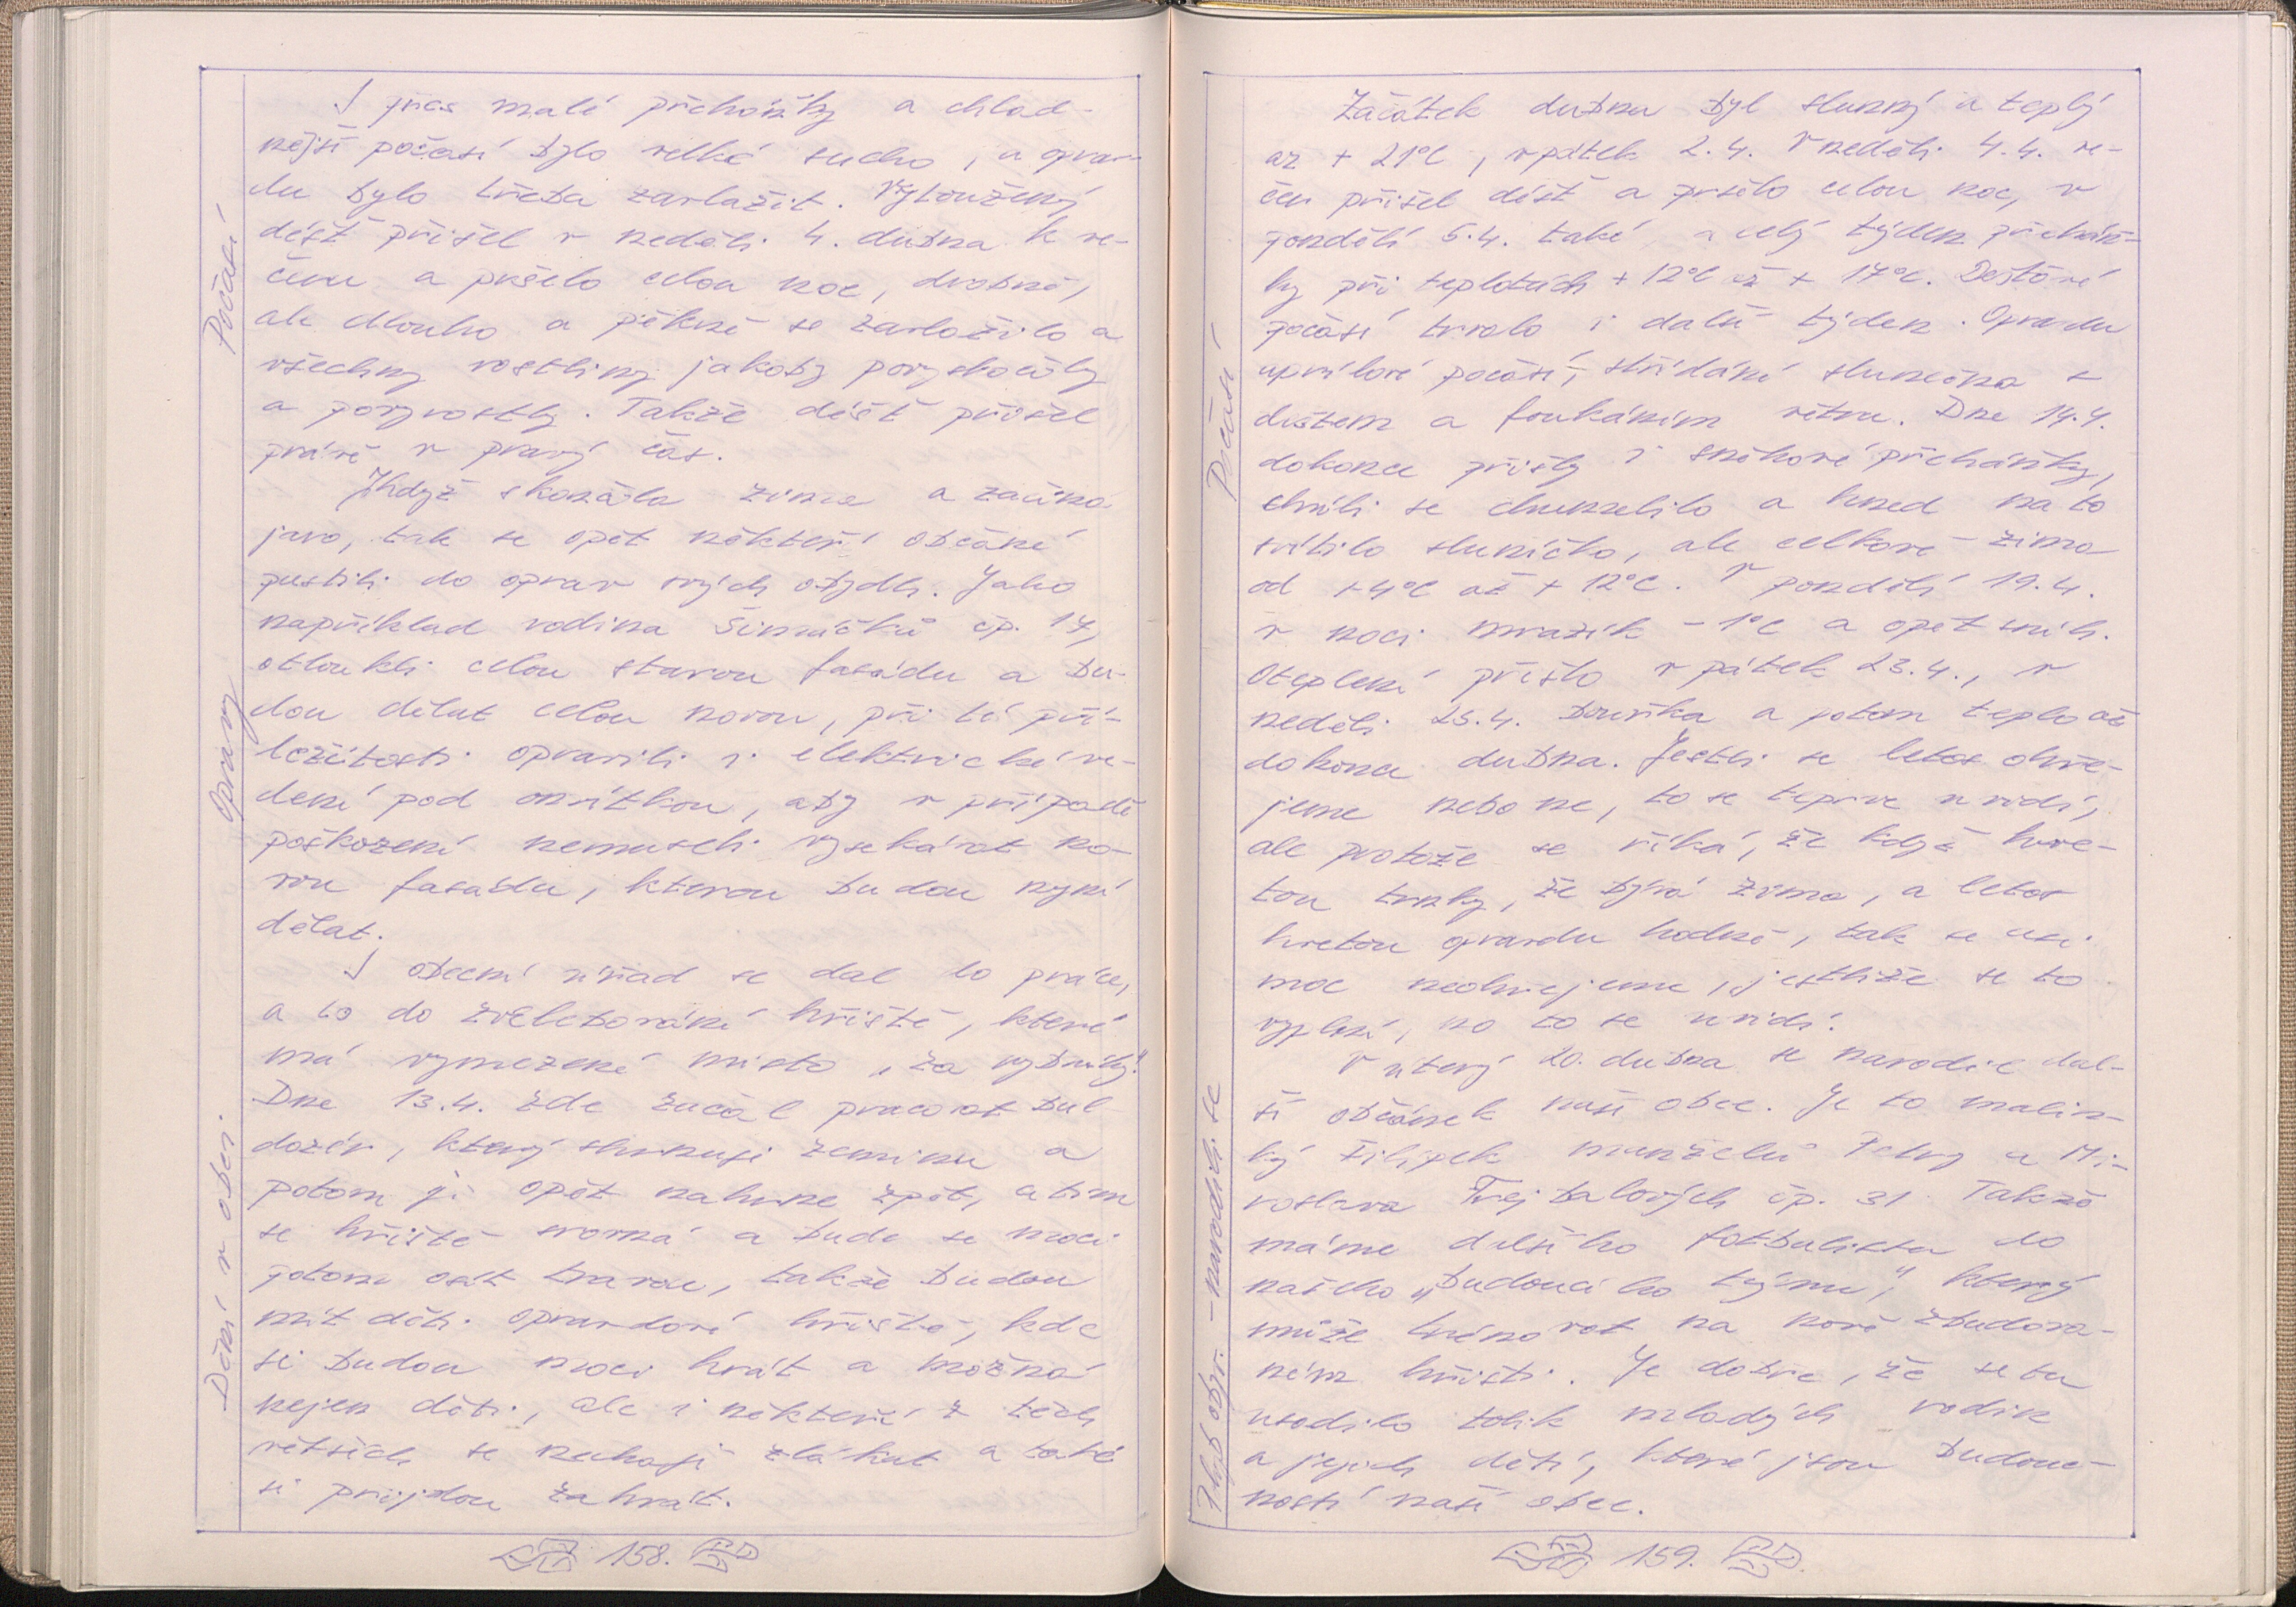 Počasí
I přes malé přeháňky a chlad-
nější počasí bylo velké sucho, a oprav-
du bylo třeba zavlažit. Vytoužený
déšť přišel v neděli 4. dubna k ve-
čeru a pršelo celou noc, drobně,
ale dlouho a pěkně se zavlažilo a
všechny rostliny jakoby povyskočily
a povyrostly. Takže déšť přišel
právě v pravý čas.
Opravy
Když skončila zima a začíná
jaro, tak se opět někteří občané
pustili do oprav svých obydlí. Jako
například rodina Šimáčků čp. 17,
otloukli celou starou fasádu a bu-
dou dělat celou novou, při té pří-
ležitosti opravili i elektrické ve-
dení pod omítkou, aby v případě
poškození nemuseli vysekávat no-
vou fasádu, kterou budou nyní
dělat.
Dění v obci
I obecní úřad se dal do práce,
a to do zvelebování hřiště, které
má vymezené místo „za vybmílý."
Dne 13.4. zde začal pracovat bul-
dozér, který shrnuje zeminu a
potom ji opět nahrne zpět, a tím
se hřiště srovná a bude se moci
potom osít travou, takže budou
mít děti opravdové hřiště, kde
si budou moci hrát a možná
nejen děti, ale i někteří z těch
větších se nechají zlákat a také
si přijdou zahrát.
158.
Počasí
Začátek dubna byl slunný a teplý
až + 21°C, v pátek 2.4. V neděli 4.4. ve-
čer přišel déšť a pršelo celou noc, v
pondělí 5.4. také a celý týden přeháň-
ky při teplotách + 12°C až + 17°C. Deštové
počásí trvalo i další týden. Opravdu
aprílové počásí, střídání slunečka s
deštem a foukáním větru. Dne 14.4.
dokonce přišly i sněhové přeháňky,
chvíli se chumelilo a hned na to
svítilo sluníčko, ale celkově zima
od +4°C až + 12°C. V pondělí 19.4.
v noci mrazík -1°C a opět sníh.
Oteplení přišlo v pátek 23.4., v
neděli 25.4. bouřka a potom teplo až
dokonce dubna. Jestli se letos ohře-
jeme nebo ne, to se teprve uvidí,
ale protože se říká, že když kve-
tou trnky, že bývá zima, a letos
kvetou opravdu hodně, tak se asi
moc neohřejeme, jestliže se to
vyplní, no to se uvidí.
Pohyb obyv. - narodili se
V úterý 20. dubna se narodil dal-
ší občánek naší obce. Je to malin-
ký Filípek manželů Petry a Mi-
roslava Trejbalových čp. 31. Takže
máme dalšího fotbalistu do
našeho „budoucího týmu", který
může trénovat na nově zbudova-
ném hřišti. Je dobře, že se tu
usadilo tolik mladých rodin
a jejich dětí, které jsou budouc-
ností naší obce.
159.